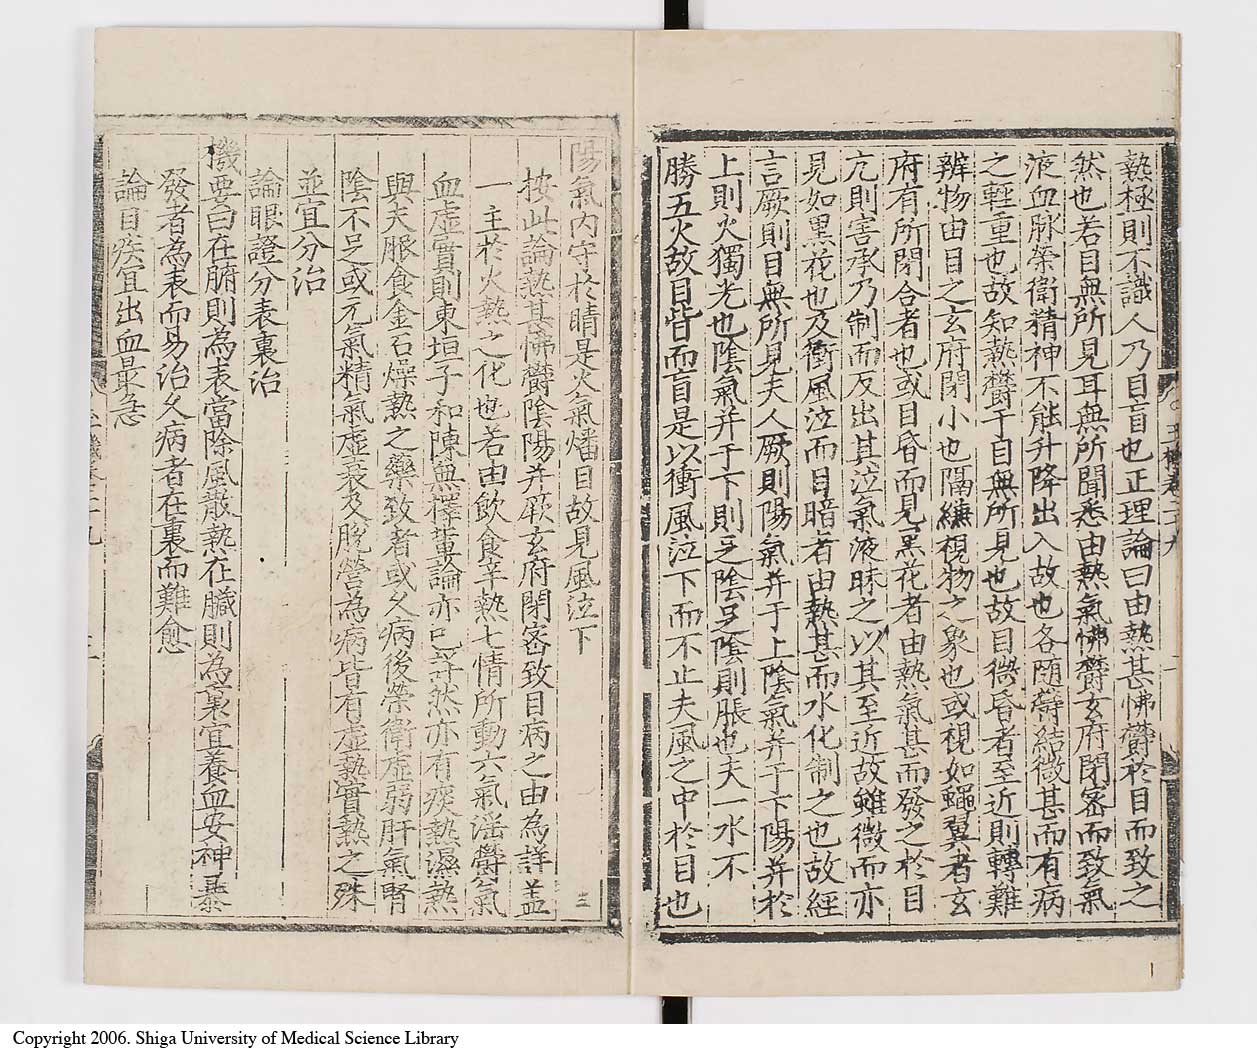 熱極則不識人乃目盲也正理論曰由熱甚怫鬱於目而致之
然也若目無所見耳無所聞悉由熱氣怫鬱玄府閉密而致氣
液血脉榮衛精神不能升降出入故也各随鬱結微甚而有病
之輕重也故知熱鬱于目無所見也故目微昏者至近則轉難
辨物由目之玄府閉小也隔縑視物之象也或視如蠅翼者玄
府有所閉合者也或目昏而見黑花者由熱氣甚而發之於目
亢則害承乃制而反出其泣氣液昧之以其至近故雖微而亦
見如黑花也及衝風泣而目暗者由熱甚而水化制之也故經
言厥則目無所見夫人厥則陽氣并于上陰氣并于下陽并於
上則火獨光也陰氣并于下則足陰足陰則脹也夫一水不
勝五火故目眥而盲是以衝風泣下而不止夫風之中於目也
陽氣内守於睛是火氣燔目故見風泣下
按此論熱甚怫鬱陰陽并厥玄府閉密致目病之由為詳盖
一主於火熱之化也若由飲食辛熱七情所動六氣淫鬱氣
血虛實則東垣子和陳無擇輩論亦已詳然亦有痰熱濕熱
與夫服食金石燥熱之藥致者或久病後榮衛虛弱肝氣腎
陰不足或元氣精氣虛衰及脫營為病皆有虛熱實熱之殊
並宜分治
論眼證分表裏治
機要曰在腑則為表當除風散熱在臟則為裏宜養血安神暴
發者為表而易治久病者在裏而難愈
論目疾宜出血最急
Copyright 2006. Shiga University of Medical Science Library